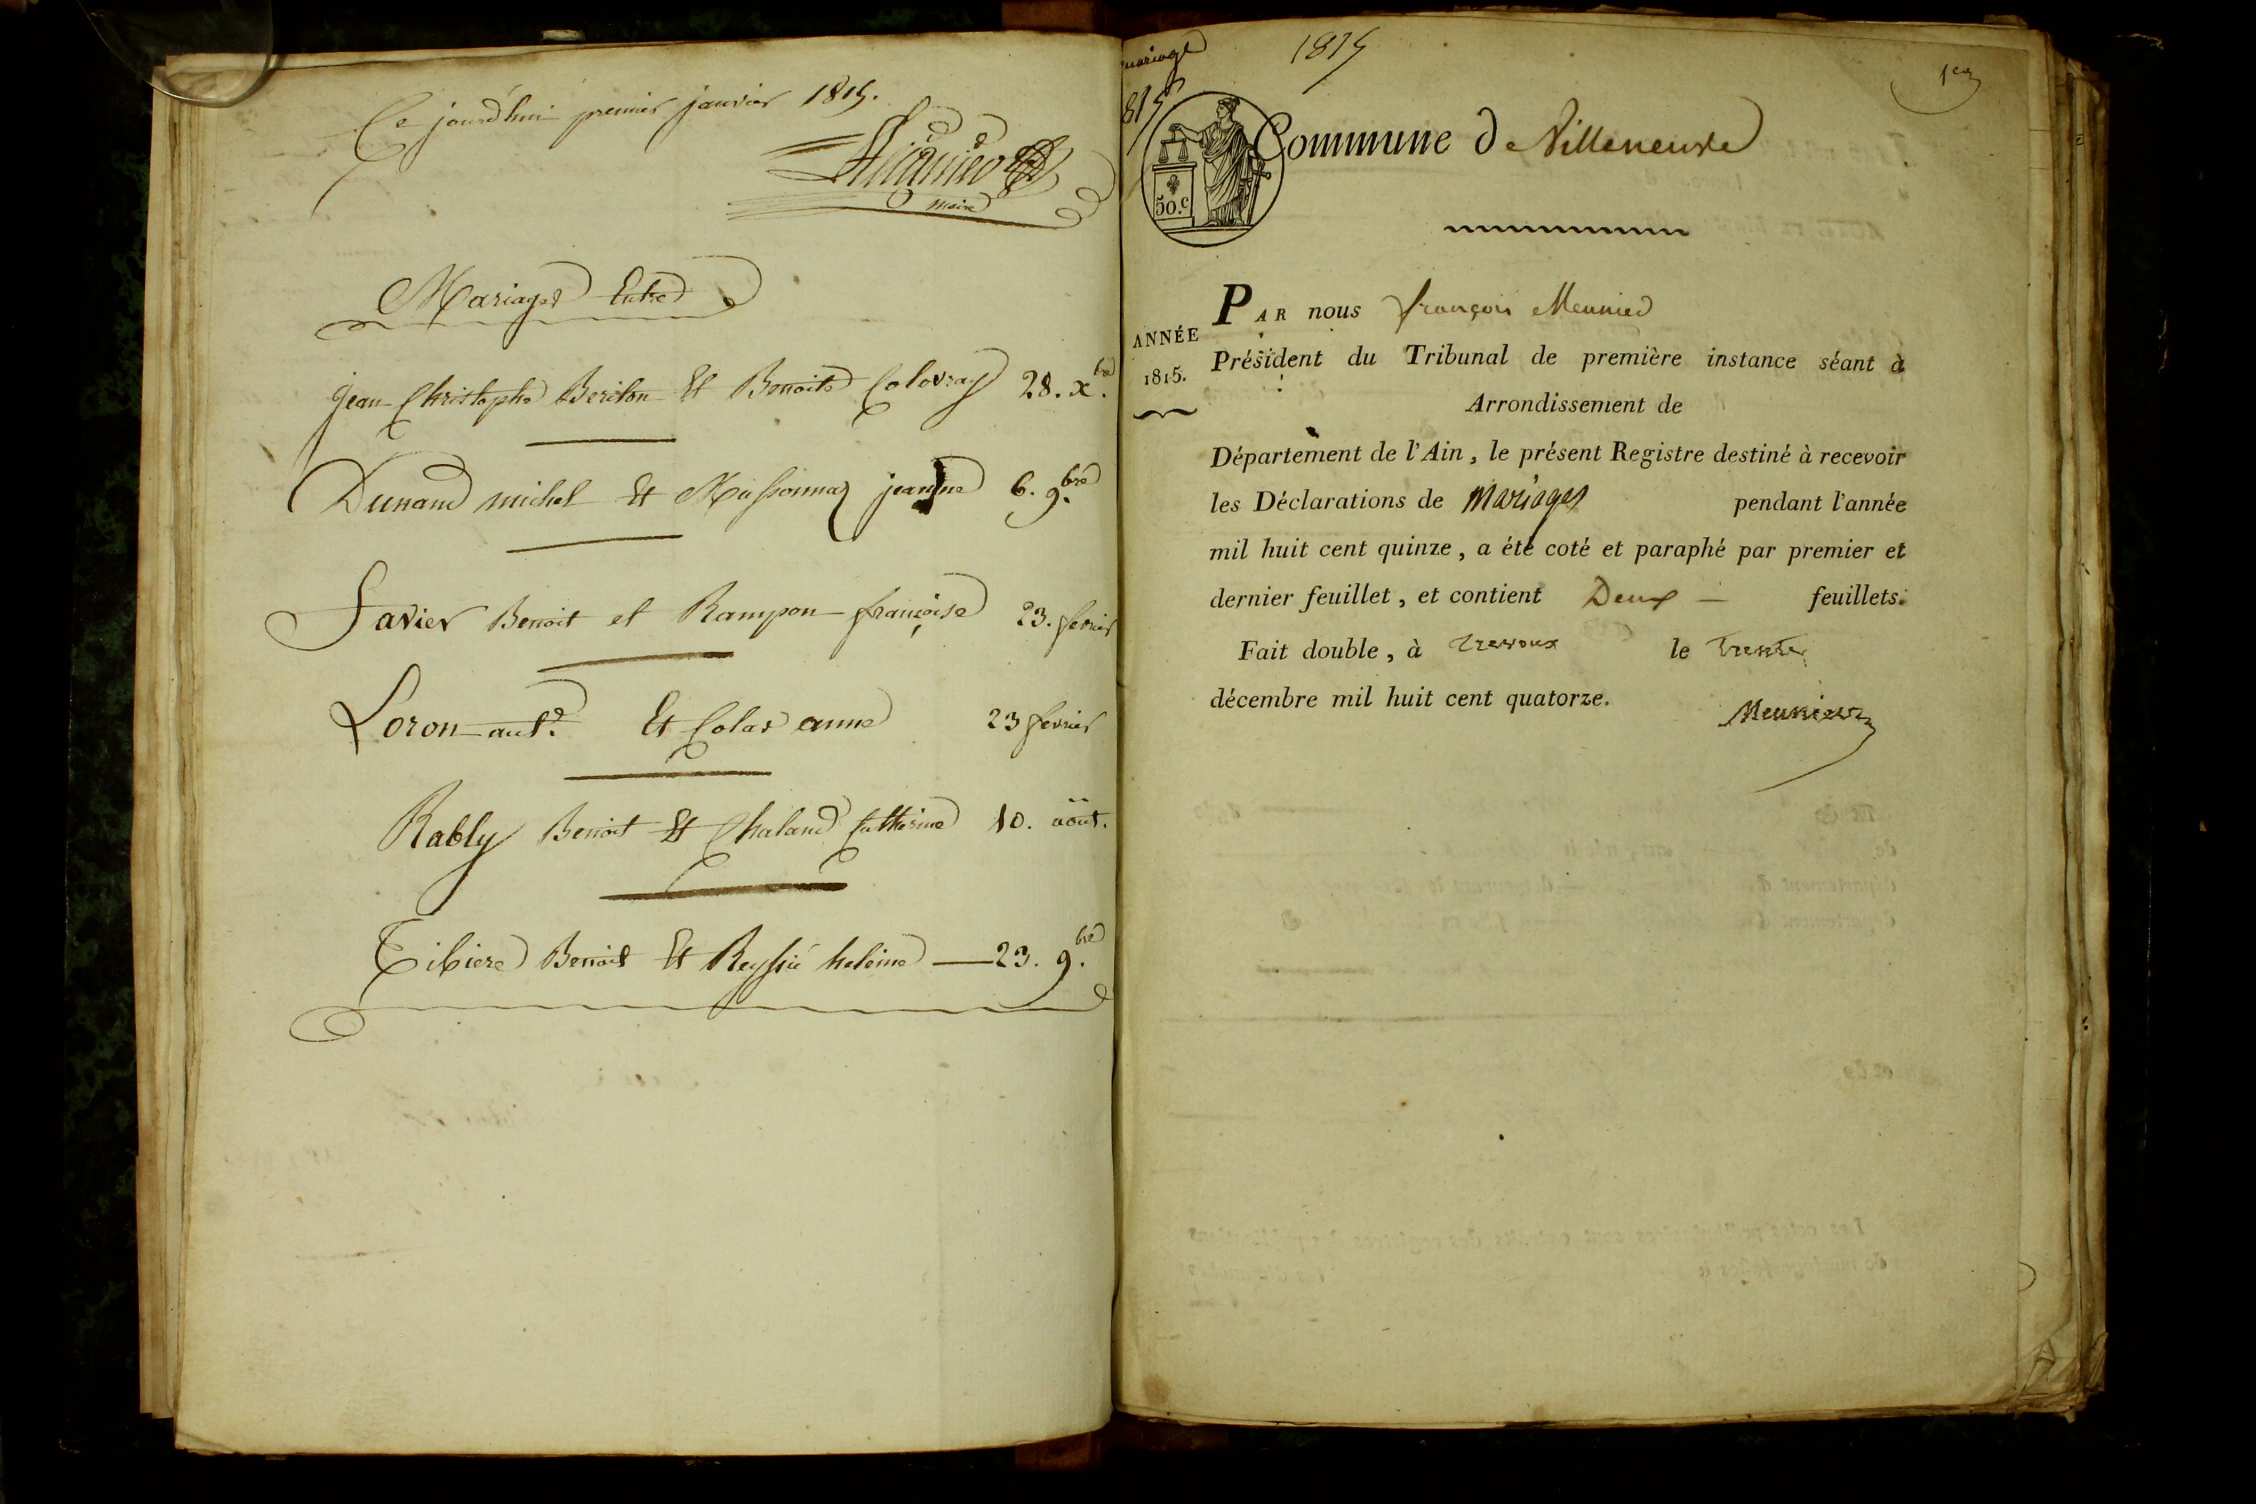 Ce jourd'hui premier janvier 1815.
maire
Mariages Entre
jean Christophe Beriton Et Benoite Colovray 28. xbre.
Dunand michel Et Massonnay jeanne 6. 9.bre
Favier Benoit et Rampon françoise 23. fevrier
Loron ant.e Et Colas anne 23 fevrier
Rably Benoit Et Chaland Catherine 10. août.
Tibiere Benoit Et Reyssié heleine — 23. 9.bre
mariage
1815
1815
1er
Commune de Villeneuve
50.c
PAR nous françois Meunier
ANNÉE
1815.
Président du Tribunal de première instance séant à
Arrondissement de
Département de l'Ain, le présent Registre destiné à recevoir
les Déclarations de Mariages pendant l'année
mil huit cent quinze, a été coté et paraphé par premier et
dernier feuillet, et contient Deux — feuillets.
Fait double, à Trevoux le Trente
décembre mil huit cent quatorze.
Meunier